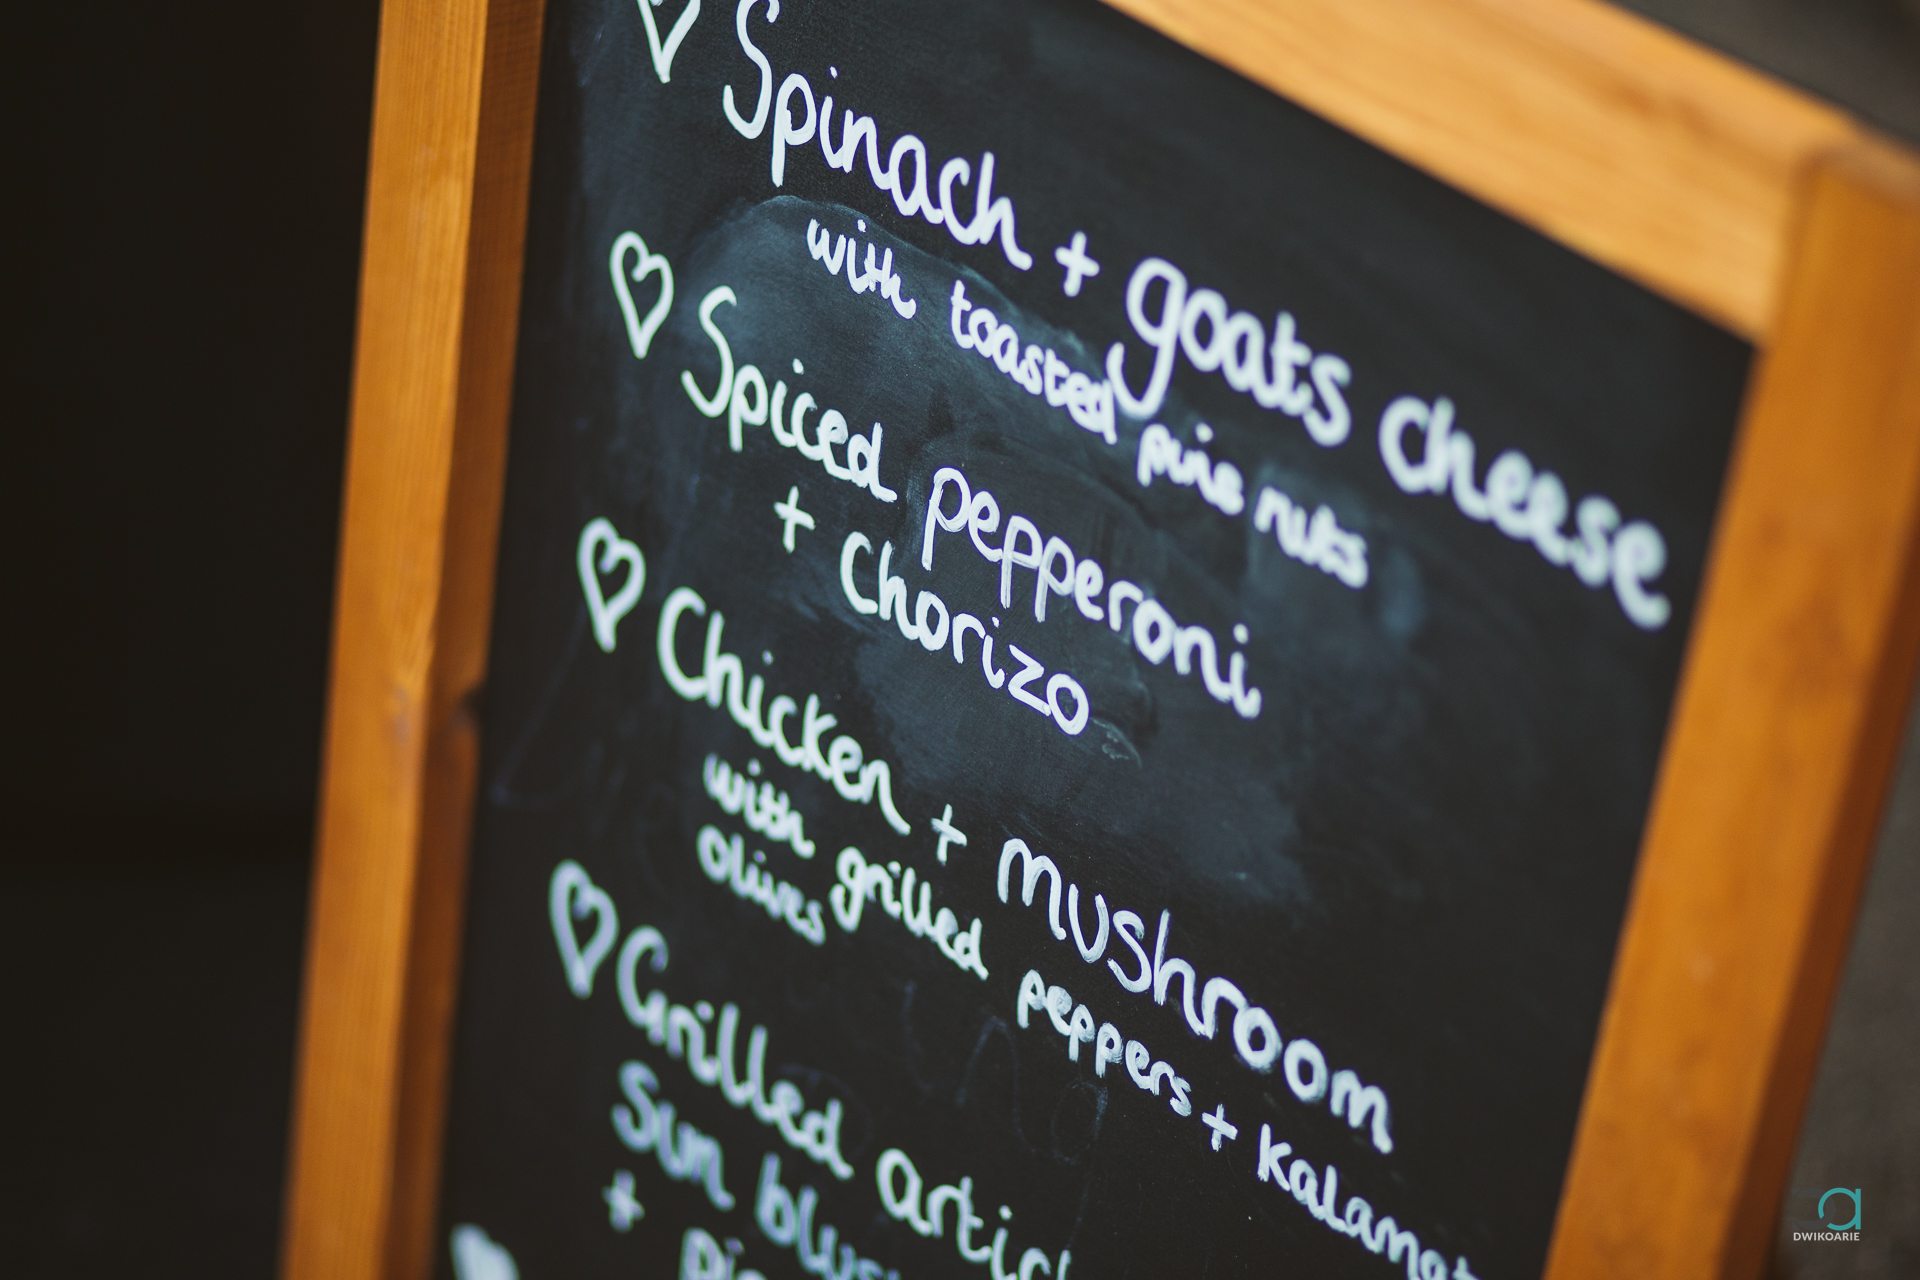 Spinach + goats cheese
with toasted pine nuts
Spiced pepperoni
+ Chorizo
Chicken + mushroom
with grilled peppers + kalamat
Olives
Grilled artic
Sun blus
+
DWIKOARIE